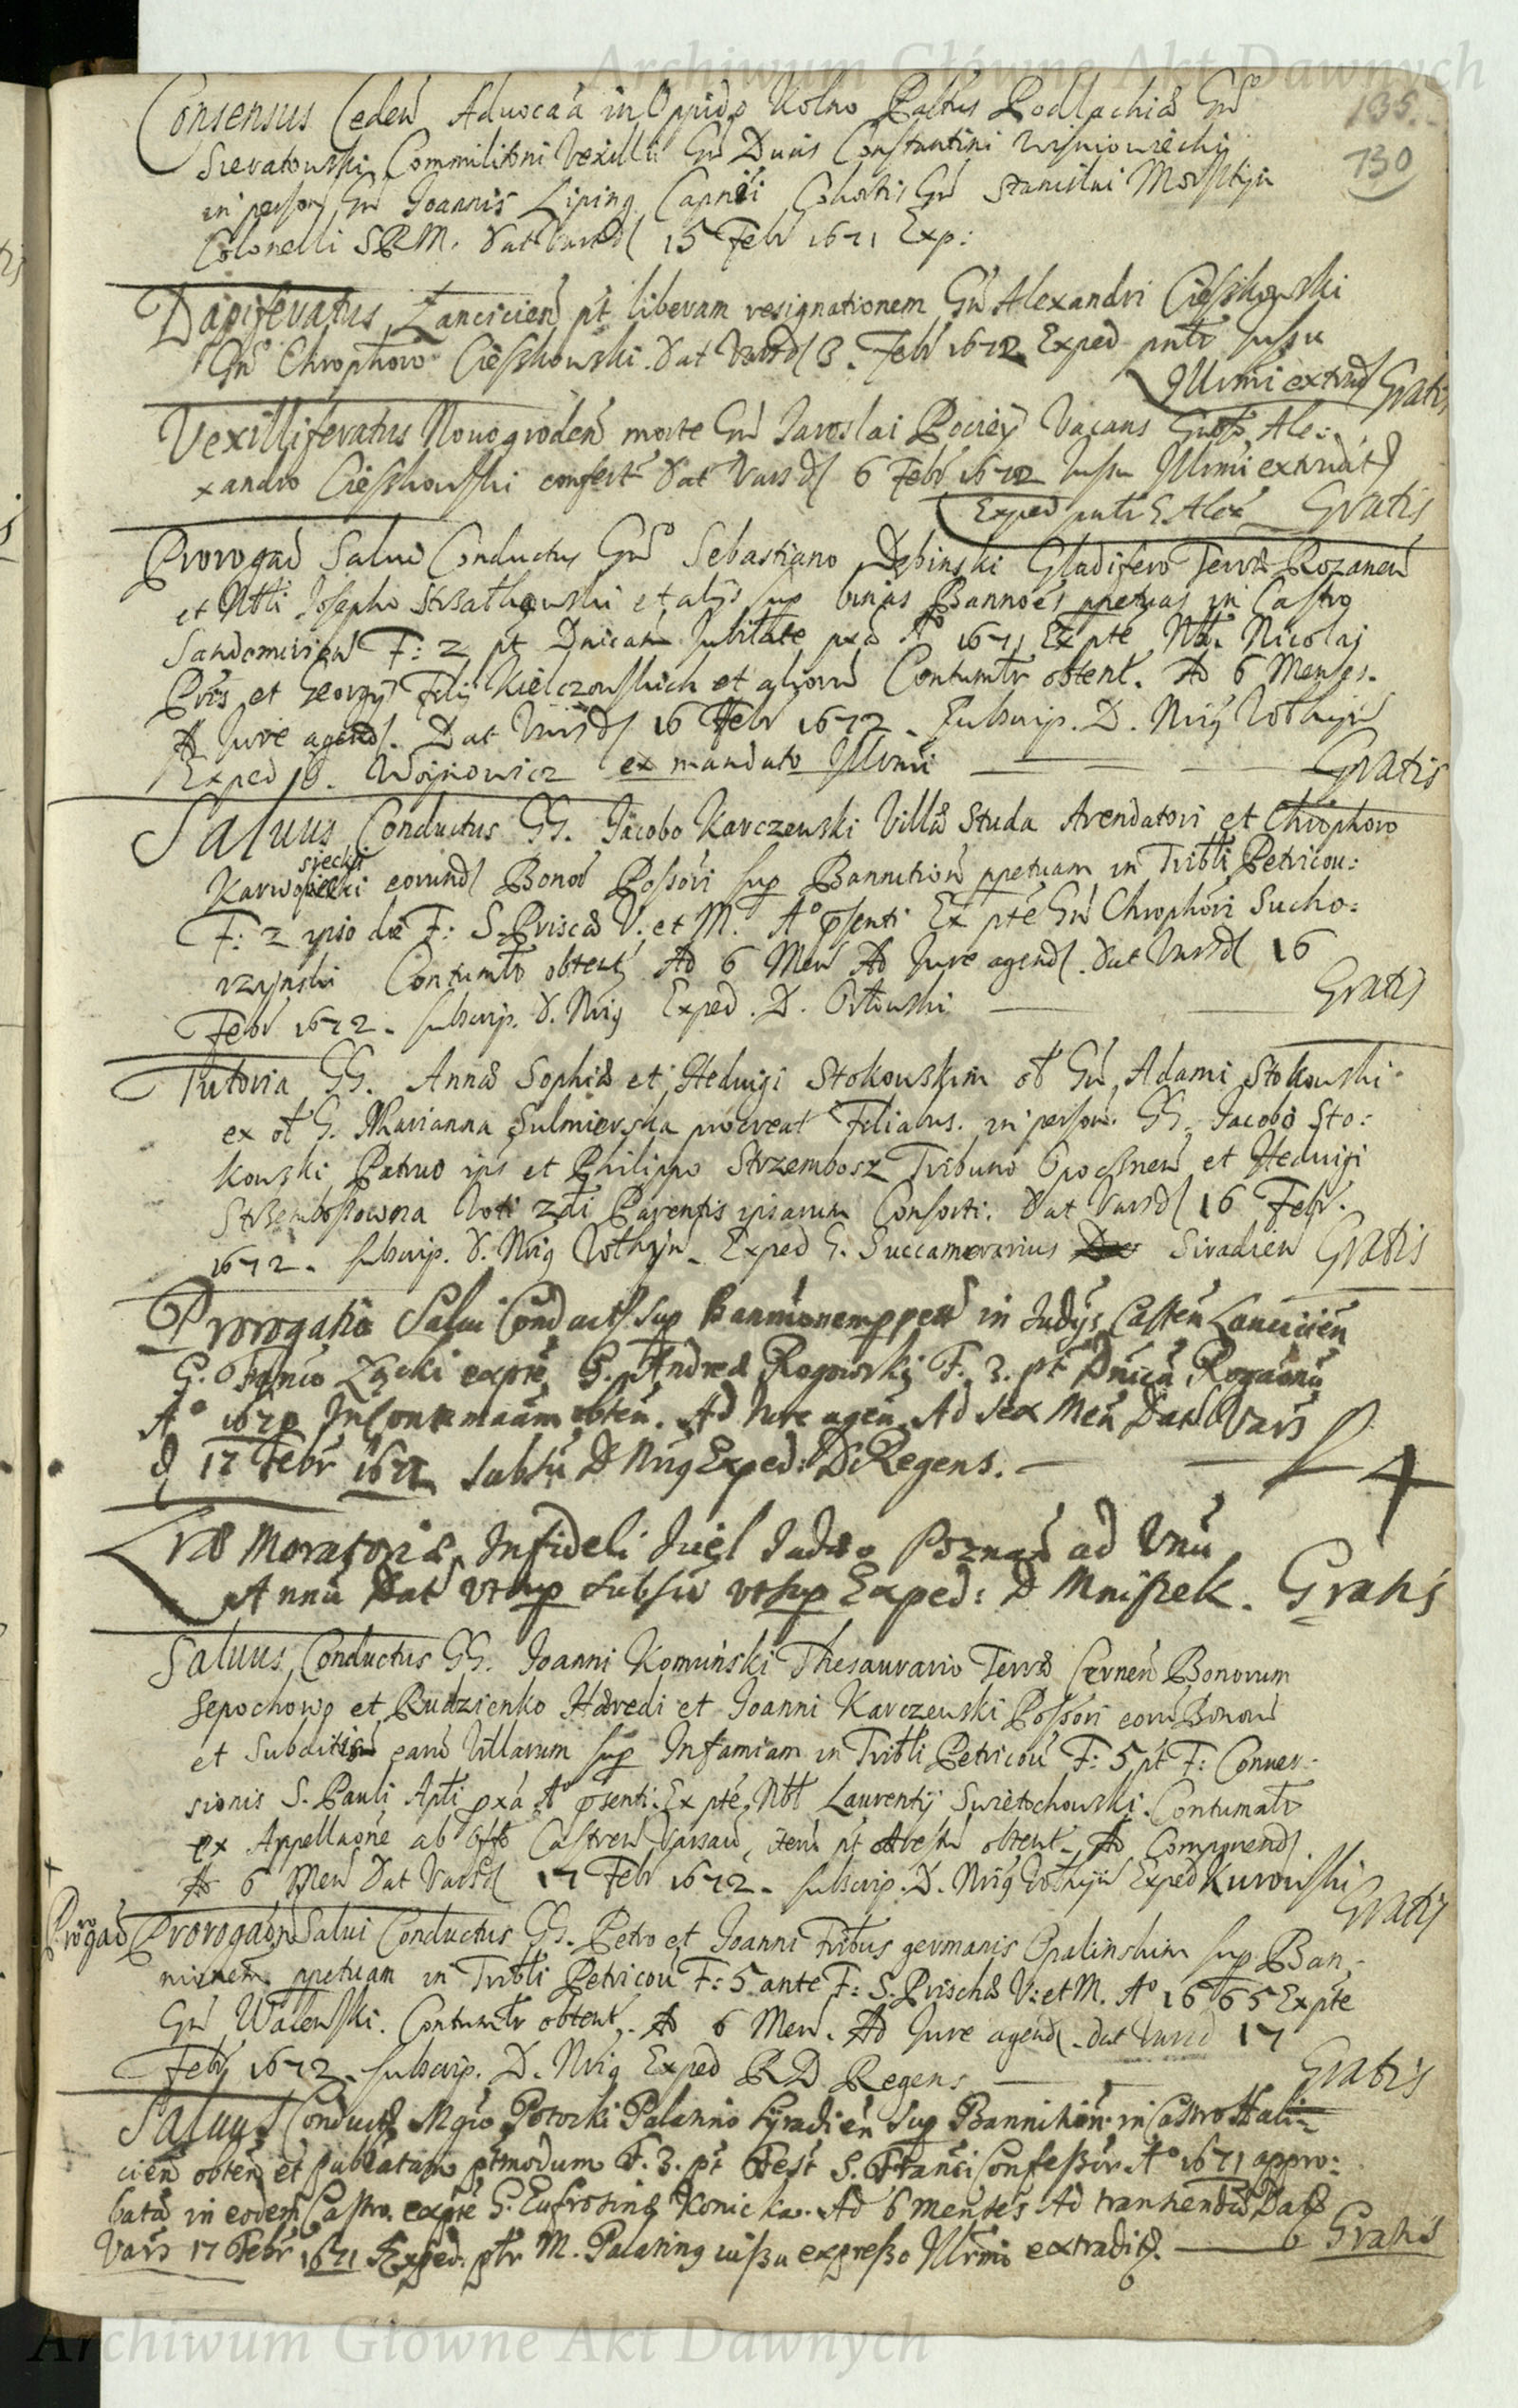 Archiwum Główne Akt Dawnych
135.
130
Consensus Ceden Advocaa in Oppido Kolno Pallus Podlachiæ Gno
Sieratowski Commilitoni Vexilli Gn Ducis Constantini Wisniowiechy
in person Gn Joannis Liping Capnei Cohortis Gn Stanislai Morsztyn
Colonelli S R M. Dat Varsd 15 Febr 1671 Exp:
Dapiferatus Lancicien pt liberam resignationem Gn Alexandri Ciesskowski
Gno Chrophoro Ciesskowski. Dat Varsd 3. Febr 1672 Exped pntr Jussu
Illrmi extrad Gratis
Vexilliferatus Novogroden morte Gn Jaroslai Pociey Vacans Gnoso Ale:
xandro Ciesskowski confert Dat Varsd 6 Febr 1672 Jussu Illrmi extradit
Exped pntr G. Alex Gratis
Prorogao Salui Conductus Gno Sebastiano Dębinski Gladifero Terræ Rozanen
et Nbli Josepho Strzałkowski et alys sup binas Bannoes ppetuas in Castro
Sandomirien F: 2 pt Dnicam Jubilate pxa Ao 1671 Ex pte Nbl Nicolai
Pris et Georgy Filij Kielczowskich et aliorum Contumtr obtent. Ad 6 Menses.
Ad Jure agend. Dat Varsd 16 Febr 1672. Subscrip. D. Nrig Wolhyn
Exped D. Woynowicz ex mandato Illrmi Gratis
Saluus Conductus GG. Jacobo Karczewski Villæ Studa Arendatori et Chrophoro
siecki
Karwosiecki eorund Bonor Possori sup Bannition ppetuam in Tribli Petricou:
F: 2 ipso die F: S. Priscæ V. et M. Ao psenti Ex pte Gn Chrophori Sucho:
rzynski Contumtr obtent Ad 6 Men Ad Jure agend. Dat Varsd 16
Febr 1672. subscrip. D. Nrig Exped. D. Orłowski Gratis
Tutoria GG. Annæ Sophiæ et Hedvigi Stokowskim ol Gn Adami Stokowski
ex ol G. Marianna Sulmierska procreat Filiabus. in person. GG. Jacobo Sto:
kowski Patruo ips et Philippo Strzembosz Tribuno Opocznen et Hedvigi
Strzemboszowna Voti 2di Parentis ipsarum Consorti. Dat Varsd 16 Febr.
1672. subscrip. D. Nrig Wolhyn. Exped G. Succamerarius Siradien Gratis
Prorogatio Salui Conduct sup Bannionem ppeta in Judys Casten Lancicien
G. Franco Zącki expte G. Andreæ Rogowski F. 3. pt Dnica Rogaonu
Ao Incontumaam obten. Ad Jure agen Ad sex Men Dat Vars
d 17 Febr 1672 Subsu D Nrig Exped: D Regens. 4
Lræ Moratoriæ Infideli Juel Judæo Poznan ad Unu
Annu Dat Vtsup subsu vtsup Exped: D Mniszek. Gratis
Saluus Conductus GG. Joanni Komunski Thesaurario Terræ Cernen Bonorum
Sepochowo et Budzienko Hæredi et Joanni Karczewski Possori eoru Bonoru
et Subditis earu Villarum sup Infamiam in Tribli Petricou F: 5 pt F: Conuer-
sionis S. Pauli Apli pxa Ao psenti. Ex pte Nbl Laurenty Swietochowski Contumatr
ex Appellaone ab Offo Castren Varsau, item pt Arestu obtent. Ad Componend
Ad 6 Men Dat Varsd 17 Febr 1672. subscrip. D. Nrig Wolhyn Exped Kurowski Gratis
Prorogao Prorogaon Salui Conductus GG. Petro et Joanni Fribus germanis Opalinskim sup Ban-
nionem ppetuam in Tribli Petricou F: 5 ante F: S. Prischæ V: et M. Ao 1665 Ex pte
Gn Walewski. Contumtr obtent. Ad 6 Men. Ad Jure agend. Dat Varsd 17
Febr 1672. subscrip. D. Nrig Exped R D Regens Gratis
Saluus Conduct Mgco Potocki Palatino Syradien Sup Bannition in Castro Hali-
cien obten et publicatam ptmodum F. 3. pt Fest S. Franci Confessor Ao 1671 appro:
bata in eodem Castro expte G. Eufrosinæ Konicka. Ad 6 menses Ad tranhend Dat
Vars 17 Febr 1671 Exped. ptr M. Palatinu iussu expresso Illrmi extradit. Gratis
Archiwum Główne Akt Dawnych